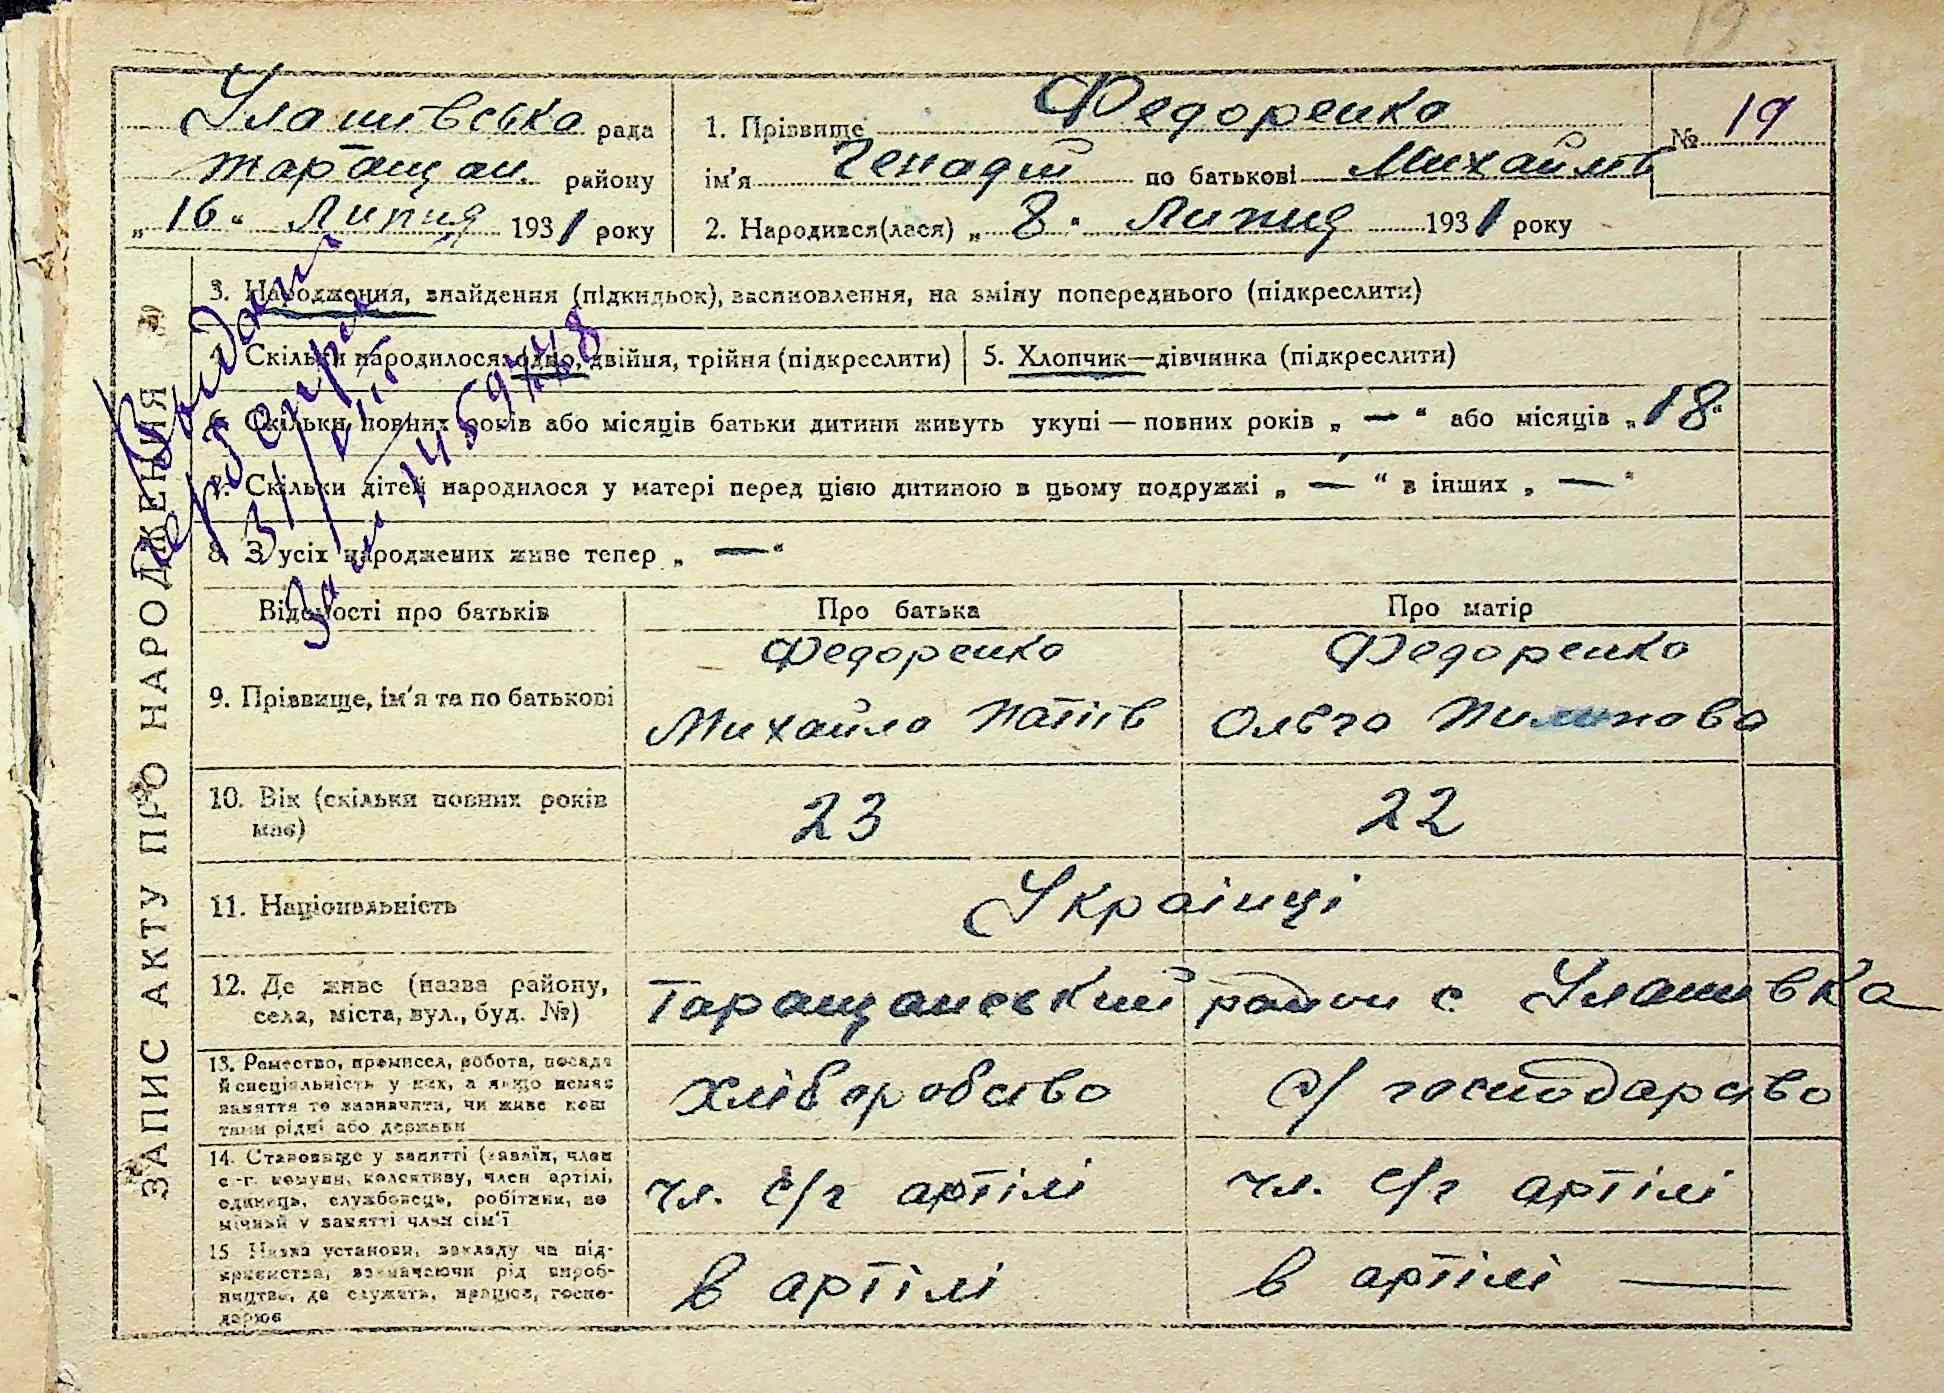 Улашівська рада
Таращан. району
„16“ Липня 1931 року
1. Прізвище Федоренко
ім'я Генадій по батькові Михайлів
2. Народився(лася) „8“ Липня 1931 року
№ 19
ЗАПИС АКТУ ПРО НАРОДЖЕННЯ
3. Народження, знайдення (підкидьок), засиновлення, на зміну попереднього (підкреслити)
4. Скільки народилося: одно, двійня, трійня (підкреслити)
5. Хлопчик—дівчинка (підкреслити)
6. Скільки повних років або місяців батьки дитини живуть укупі — повних років „ — “ або місяців „18“
7. Скільки дітей народилося у матері перед цією дитиною в цьому подружжі „ — “ в інших „ — “
8. З усіх народжених живе тепер „ — “
Відомості про батьків
Про батька
Про матір
9. Прізвище, ім'я та по батькові
Федоренко
Михайло
Федоренко
Ольга
10. Вік (скільки повних років
має)
23
22
11. Національність
Українці
12. Де живе (назва району,
села, міста, вул., буд. №)
Таращанський район с Улашівка
13. Ремество, промисел, робота, посада
й спеціяльність у них, а якщо немає
заняття то зазначити, чи живе кош
тами рідні або держави
Хліборобство
с/ господарство
14. Становище у занятті (хазяїн, член
с.-г. комуни, колективу, член артілі,
одинець, службовець, робітник, по
мічний у занятті член сім'ї
чл. с/г артілі
чл. с/г артілі
15. Назва установи, закладу чи під-
приємства, зазначаючи рід вироб-
ництва, де служить, працює, госпо-
дарює
в артілі
в артілі —